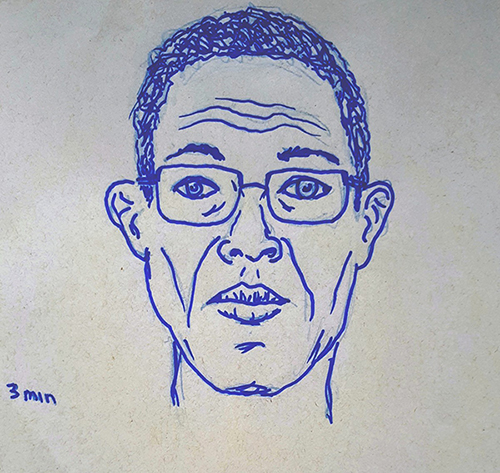 3 min